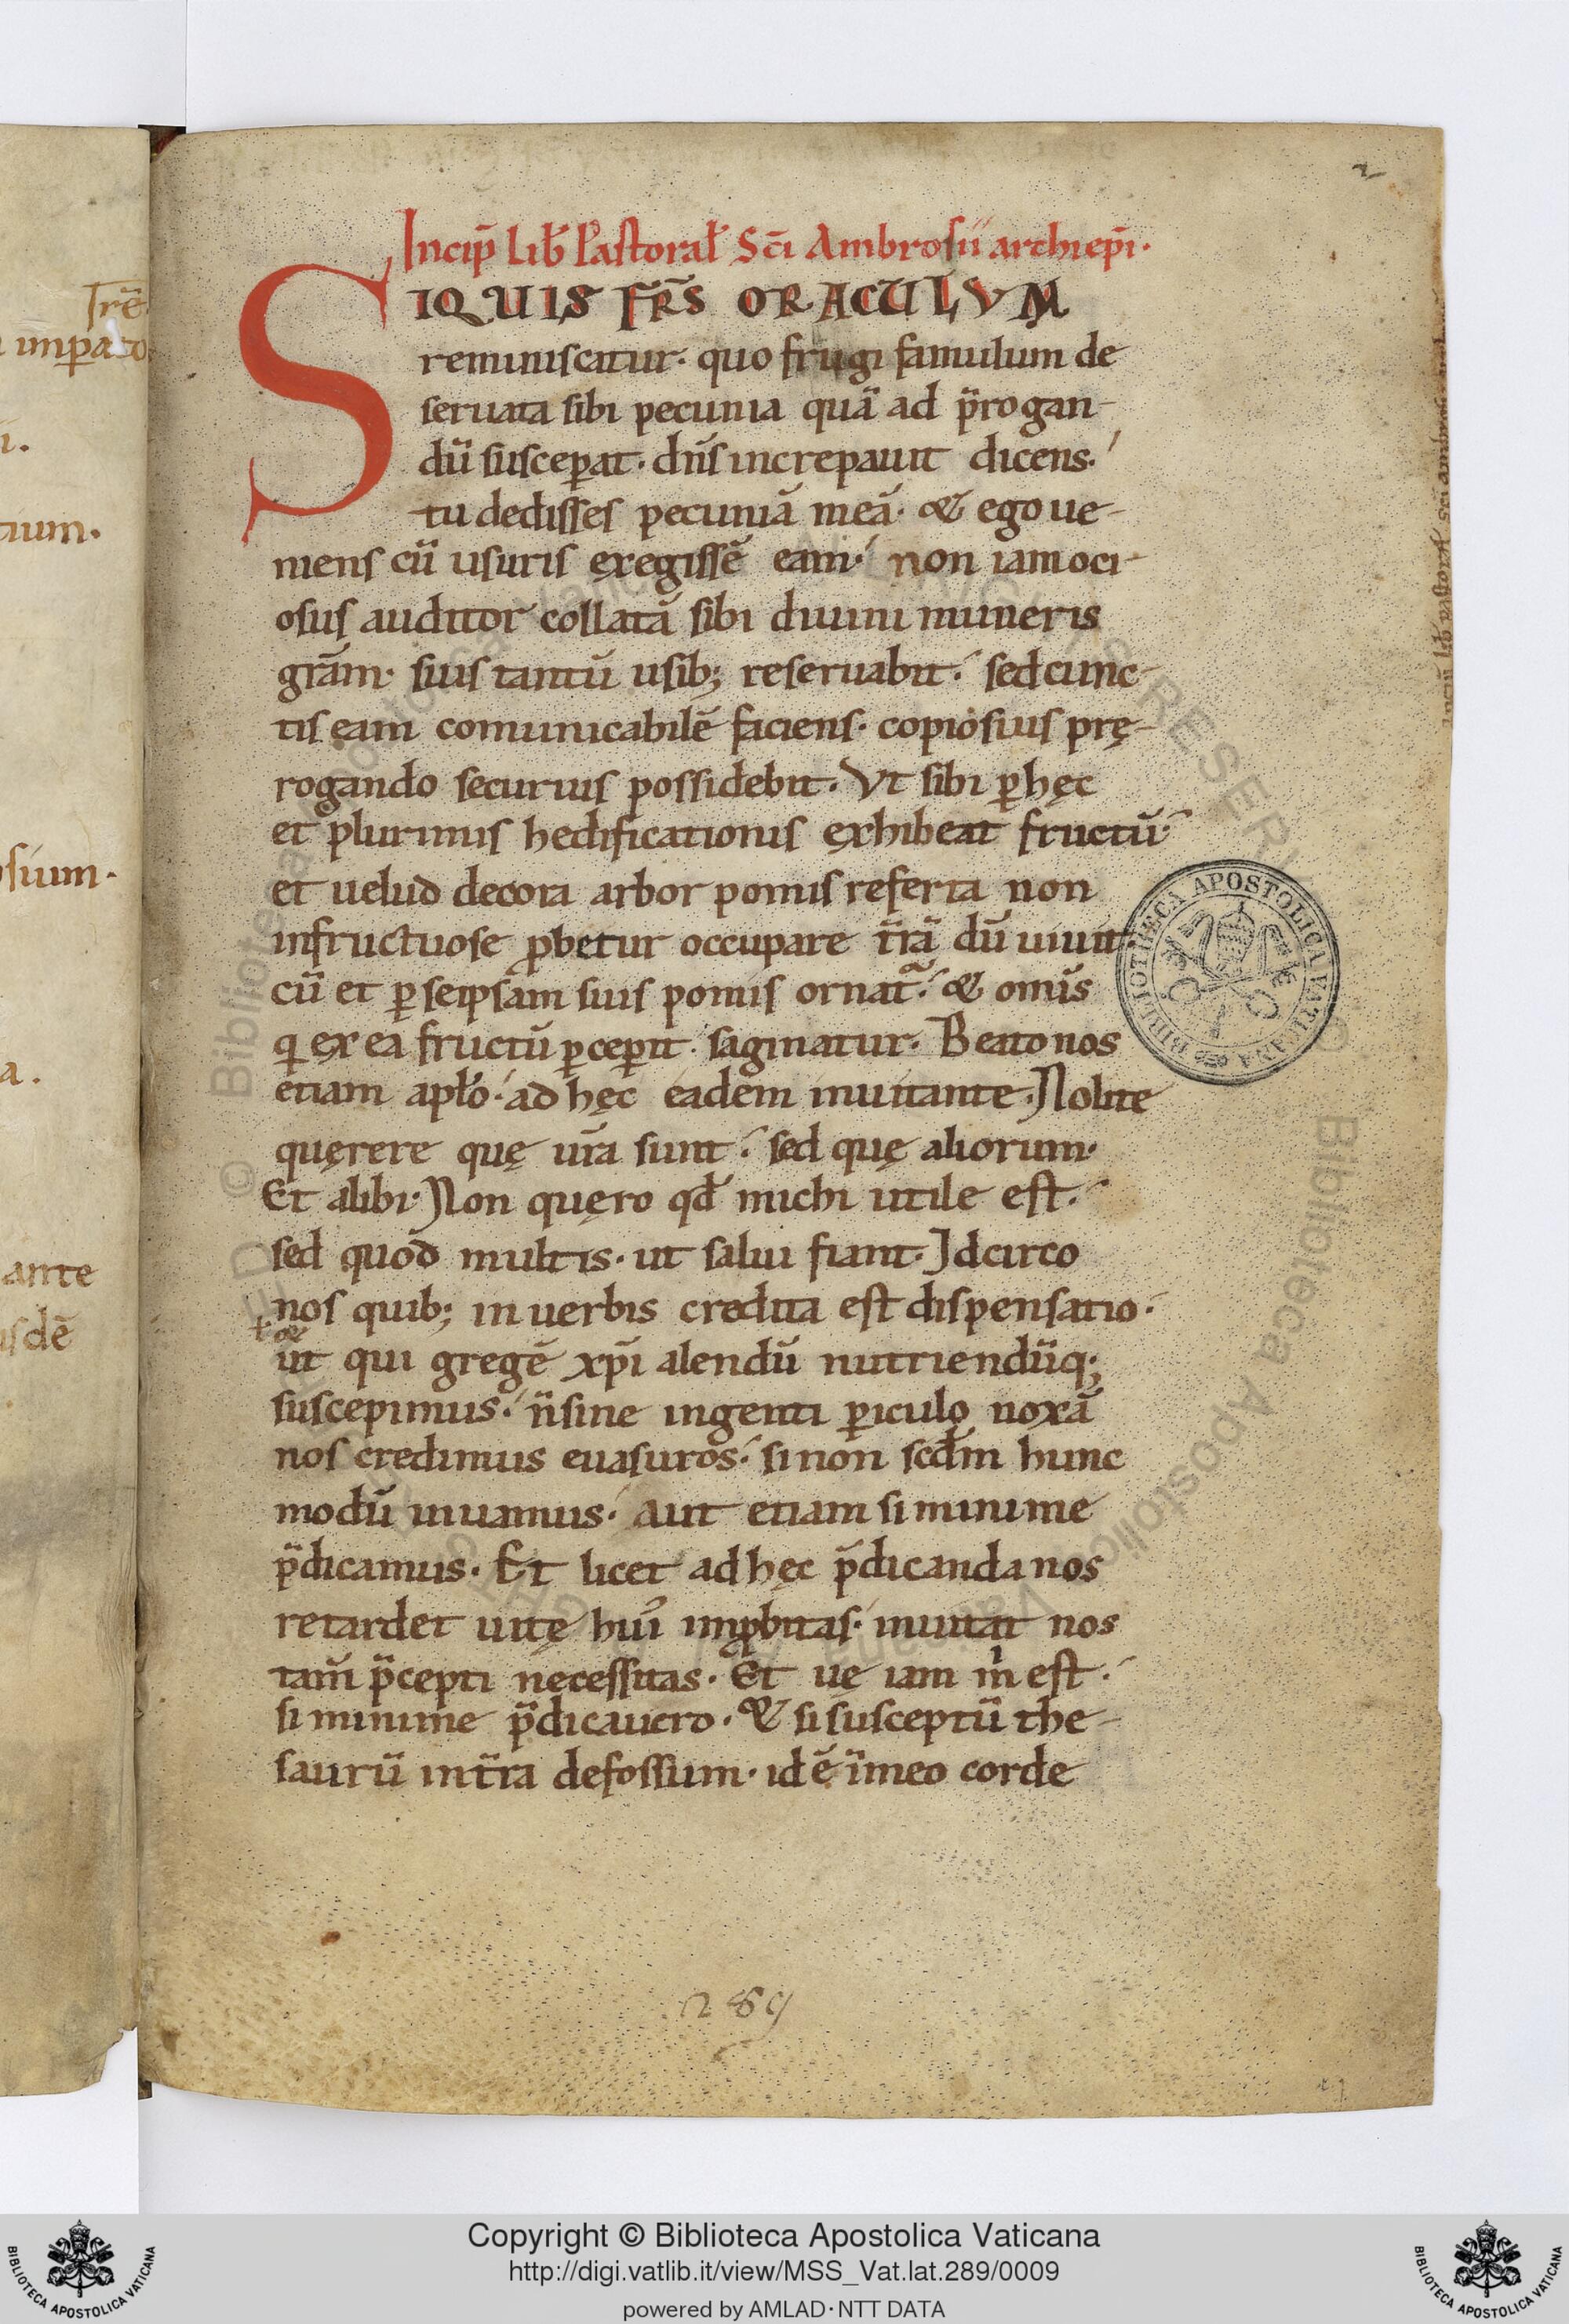 2
Incip̄ Lib̄ Pastoral̄ S̄ci Ambrosii archiep̄i.
SIQUIS FR̄S ORACULVM
reminiscatur. quo frugi famulum de
seruata sibi pecunia quā ad p̄rogan-
dū suscep̱at. dn̄s increpauit dicens.
tu dedisses pecuniā meā. & ego ue-
niens cū usuris exegissē eam. non iam oci-
osus auditor collatā sibi diuini muneris
grām. suis tantū usib; reseruabit. sed cunc-
tis eam comunicabilē faciens. copiosius prę-
rogando securius possidebit. Vt sibi ꝑ hęc
et plurimis hedificationis exhibeat fructū.
et uelud decora arbor pomis referta non
infructuose ꝓbetur occupare t̄rā dū uiuit.
cū et ꝑ seipsam suis pomis ornat̃. & omīs
q ex ea fructū ꝑceꝑit. saginatur. Beato nos
etiam apl̄o. ad hęc eadem inuitante. Nolite
quęrere quę ūra sunt. sed quę aliorum.
Et alibi. Non quęro qđ michi utile est.
sed quod multis. ut salui fiant. Idcirco
nos quib; in uerbis credita est dispensatio.
ł &
ut qui gregē xp̄i alendū nutriendūq;
suscepimus. n̄ sine ingenti ꝑiculo noxā
nos credimus euasuros. si non scđm hunc
modū uiuamus. aut etiam si minime
p̄dicamus. Et licet ad hęc p̄dicanda nos
retardet uitę hui᾽ imꝓbitas. inuitat nos
tam̄ p̄cepti necessitas. Et uę iam m̍ est.
si minime p̄dicauero. & si susceptū the-
saurū in t̄ra defossum. id ē ī meo corde
289
BIBLIOTHECA APOSTOLICA VATICANA
Copyright © Biblioteca Apostolica Vaticana
http://digi.vatlib.it/view/MSS_Vat.lat.289/0009
powered by AMLAD·NTT DATA
BIBLIOTECA APOSTOLICA VATICANA
BIBLIOTECA APOSTOLICA VATICANA